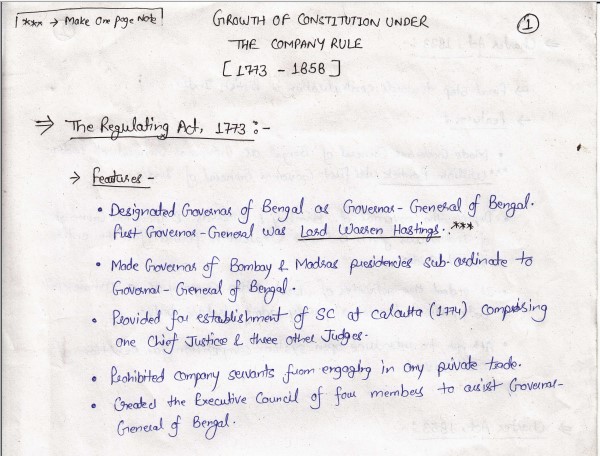 *** → Make One page Note
GROWTH OF CONSTITUTION UNDER
THE COMPANY RULE
[1773 - 1858]
1
⇒ The Regulating Act, 1773 :-
→ Features -
• Designated Governor of Bengal as Governor-General of Bengal.
First Governor-General was Lord Warren Hastings. ***
• Made Governor of Bombay & Madras presidencies sub-ordinate to
Governor-General of Bengal.
• Provided for establishment of SC at calcutta (1774) comprising
one Chief Justice & three other Judges.
• Prohibited company servants from engaging in any private trade.
• Created the Executive Council of four members to assist Governor-
General of Bengal.